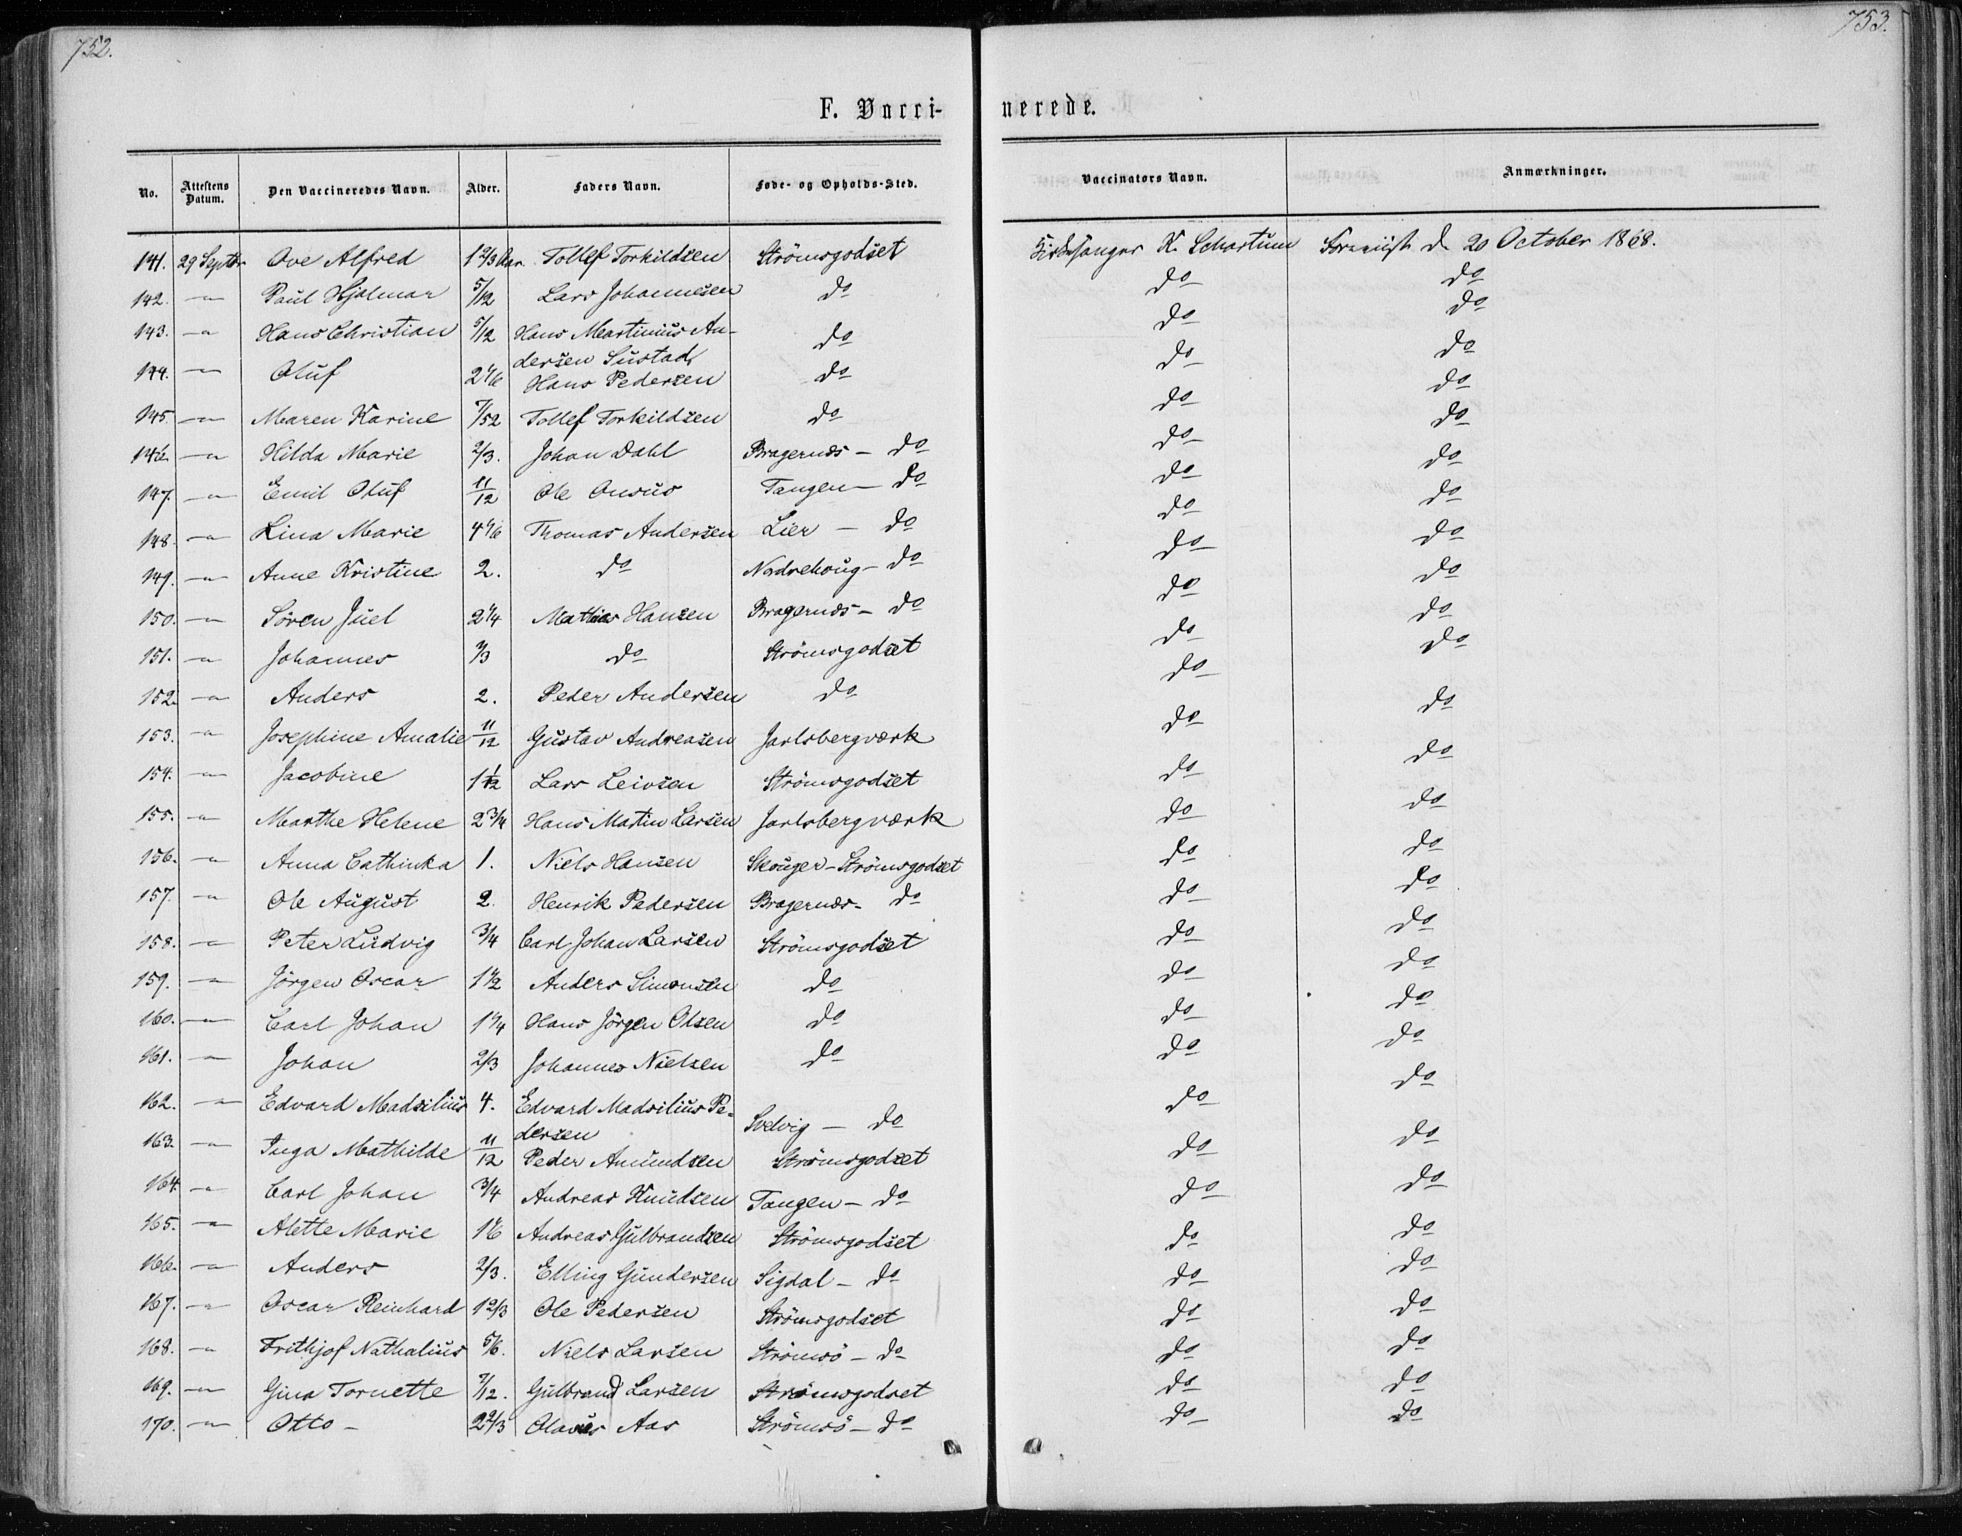 752.
753.
F. Vacci-
nerede.
No. Attestens Datum. Den Vaccineredes Navn. Alder. Faders Navn. Føde- og Opholds-Sted. Vaccinators Navn. Anmærkninger.
141. 29 Septbr. Ove Alfred 1 2/3 Aar. Tollef Torkildsen Strömsgodset Kirkesanger K. Schartum d. 20 October 1868.
142. —"— Paul Hjalmar 5/12 Lars Johannesen do do do
143. —"— Hans Christian 5/12 Hans Martinius An-
dersen Sustad do do do
144. —"— Oluf 2 1/6 Hans Pedersen do do do
145. —"— Maren Karine 7/52 Tollef Torkildsen do do do
146. —"— Hilda Marie 2/3. Johan Dahl Bragernæs — do do do
147. —"— Emil Oluf 11/12 Ole Onsus Tangen — do do do
148. —"— Lina Marie 4 1/6 Thomas Andersen Lier — do do do
149. —"— Anne Kristine 2. do Nordrehoug — do do do
150. —"— Sören Juel 2 1/4 Mathias Hansen Bragernæs — do do do
151. —"— Johannes 2/3 do Strömsgodset do do
152. —"— Anders 2. Peder Andersen do do do
153. —"— Josephine Amalie 11/12 Gustav Andreasen Jarlsbergværk do do
154. —"— Jacobine 1 1/12 Lars Leivsen Strömsgodset do do
155. —"— Marthe Helene 2 3/4 Hans Martin Larsen Jarlsbergværk do do
156. —"— Anna Cathinka 1. Niels Hansen Skouger — Strömsgodset do do
157. —"— Ole August 2. Henrik Pedersen Bragernæs — do do do
158. —"— Peter Ludvig 3/4 Carl Johan Larsen Strömsgodset do do
159. —"— Jörgen Oscar 1 1/2 Anders Simonsen do do do
160. —"— Carl Johan 1 1/4 Hans Jörgen Olsen do do do
161. —"— Johan 2/3 Johannes Nielsen do do do
162. —"— Edvard Madsilius 4. Edvard Madsilius Pe-
dersen Svelvig — do do do
163. —"— Inga Mathilde 11/12 Peder Amundsen Strömsgodset do do
164. —"— Carl Johan 3/4 Andreas Knudsen Tangen — do do do
165. —"— Alette Marie 1 1/6 Andreas Gulbrandsen Strömsgodset do do
166. —"— Anders 2/3. Elling Gundersen Sigdal — do do do
167. —"— Oscar Reinhard 1 2/3 Ole Pedersen Strömsgodset do do
168. —"— Frithjof Nathalius 5/6. Niels Larsen Strömsö — do do do
169. —"— Gina Tornette 7/12. Gulbrand Larsen Strömsgodset do do
170. —"— Otto — 2 2/3 Olavus Aas Strömsö — do do do